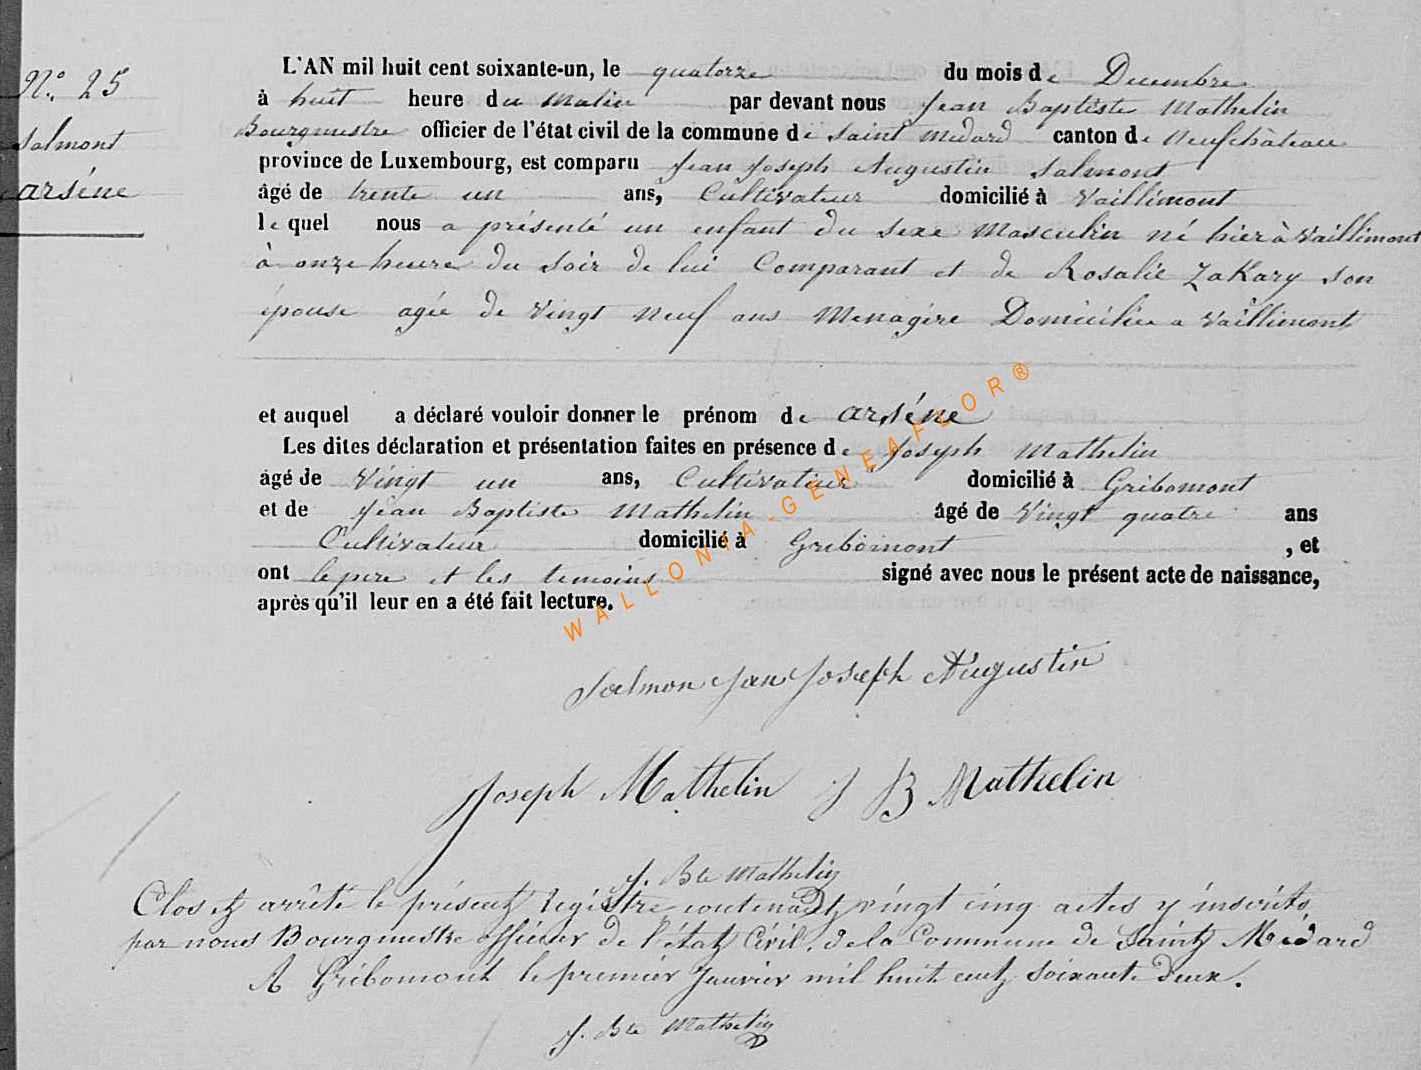 N.° 25
Salmont
arséne
L'AN mil huit cent soixante-un, le quatorze du mois de Decembre
à huit heure du Matin par devant nous Jean Baptiste Mathelin
Bourgmestre officier de l'état civil de la commune de Saint Medard canton de Neufchâteau
province de Luxembourg, est comparu Jean Joseph Augustin Salmont
âgé de trente un ans, Cultivateur domicilié à Vaillimont
lequel nous a présenté un enfant du sexe Masculin né hier à Vaillimont
à onze heure du soir de lui Comparant et de Rosalie Zakary son
épouse agée de vingt neuf ans Menagère Domiciliée a Vaillimont
et auquel a déclaré vouloir donner le prénom de arséne
Les dites déclaration et présentation faites en présence de Joseph Mathelin
âgé de Vingt un ans, Cultivateur domicilié à Gribomont
et de Jean Baptiste Mathelin âgé de Vingt quatre ans
Cultivateur domicilié à Gribomont , et
ont le pere et les temoins signé avec nous le présent acte de naissance,
après qu'il leur en a été fait lecture.
WALLONIA-GENEAFLOR®
Salmon Jean Joseph Augustin
Joseph Mathelin J B Mathelin
J. Bte Mathelin
Clos et arrêté le présent régistre contenant vingt cinq actes y inscrits
par nous Bourgmestre officier de l'état Civil de la Commune de Saint Médard
A Gribomont le premier Janvier mil huit cent soixante deux.
J. Bte Mathelin